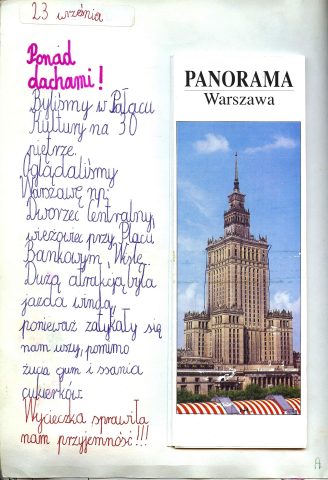 23 września
Ponad
dachami!
Byliśmy w Pałacu
Kultury na 30
piętrze.
Oglądaliśmy
Warszawę np.
Dworzec Centralny,
wieżowiec przy Placu
Bankowym, Wisłę.
Dużą atrakcją była
jazda windą,
ponieważ zatykały się
nam uszy, pomimo
żucia gum i ssania
cukierków.
Wycieczka sprawiła
nam przyjemność!!!
PANORAMA
Warszawa
A